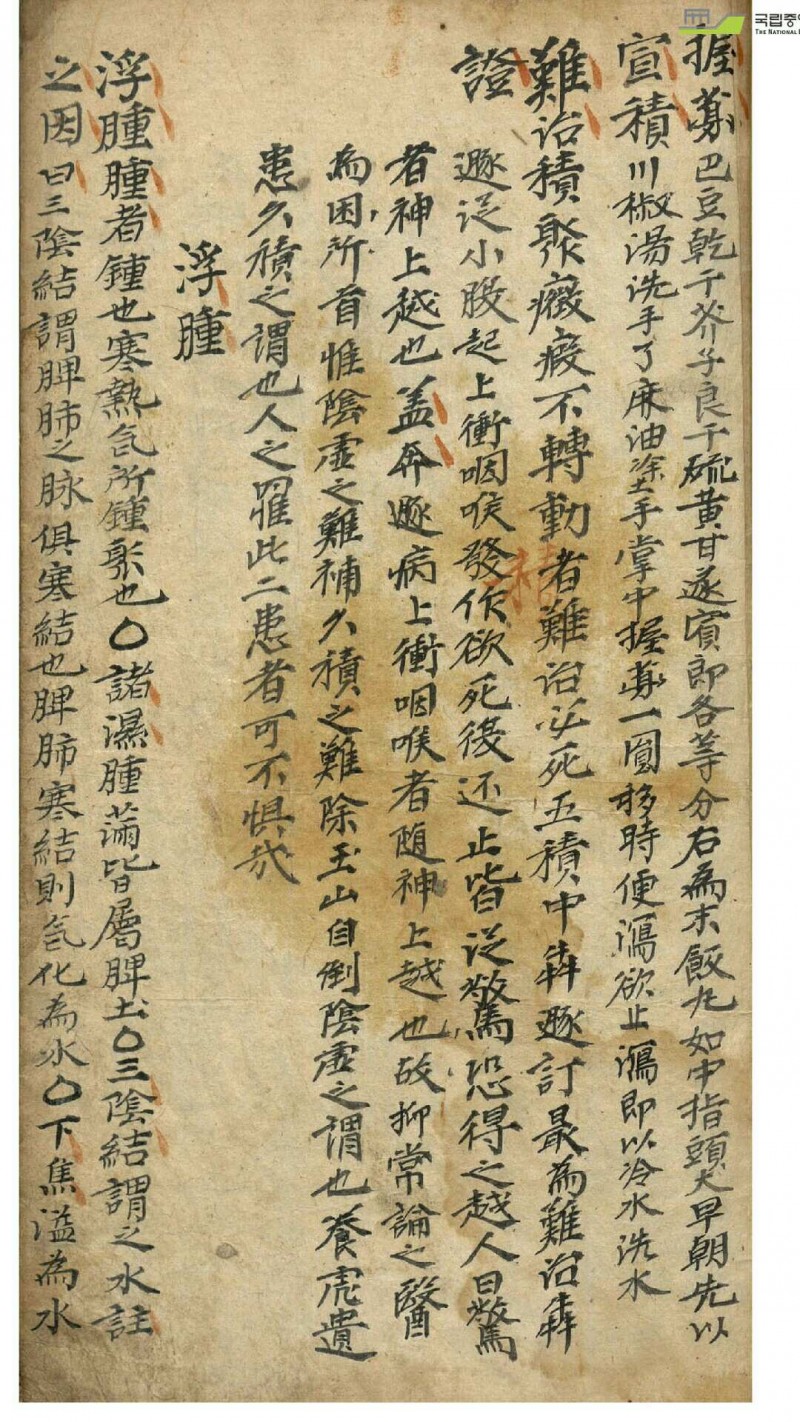 握藥巴豆乾干芥子良干硫黃甘遂賓郎各等分右為末飯丸如中指頭大早朝先以
宣積川椒湯洗手了麻油塗手掌中握藥一圓移時便瀉欲止瀉即以冷水洗水
難治積聚癥瘕不轉動者難治必死五積中犇豚訂最為難治犇
證豚從小腹起上衝咽喉發作欲死復还止皆從驚恐得之越人曰驚
者神上越也盖奔豚病上衝咽喉者随神上越也故抑常論之醫
為困所首惟陰虛之難補久積之難除玉山自倒陰虛之謂也養虎遺
患久積之謂也人之罹此二患者可不惧哉
浮腫
浮腫腫者鍾也寒熱氣所鍾聚也〇諸濕腫滿皆屬脾土〇三陰結謂之水註
之因曰三陰結謂脾肺之脉俱寒結也脾肺寒結則氣化為水〇下焦溢為水
積
국립중
THE NATIONAL